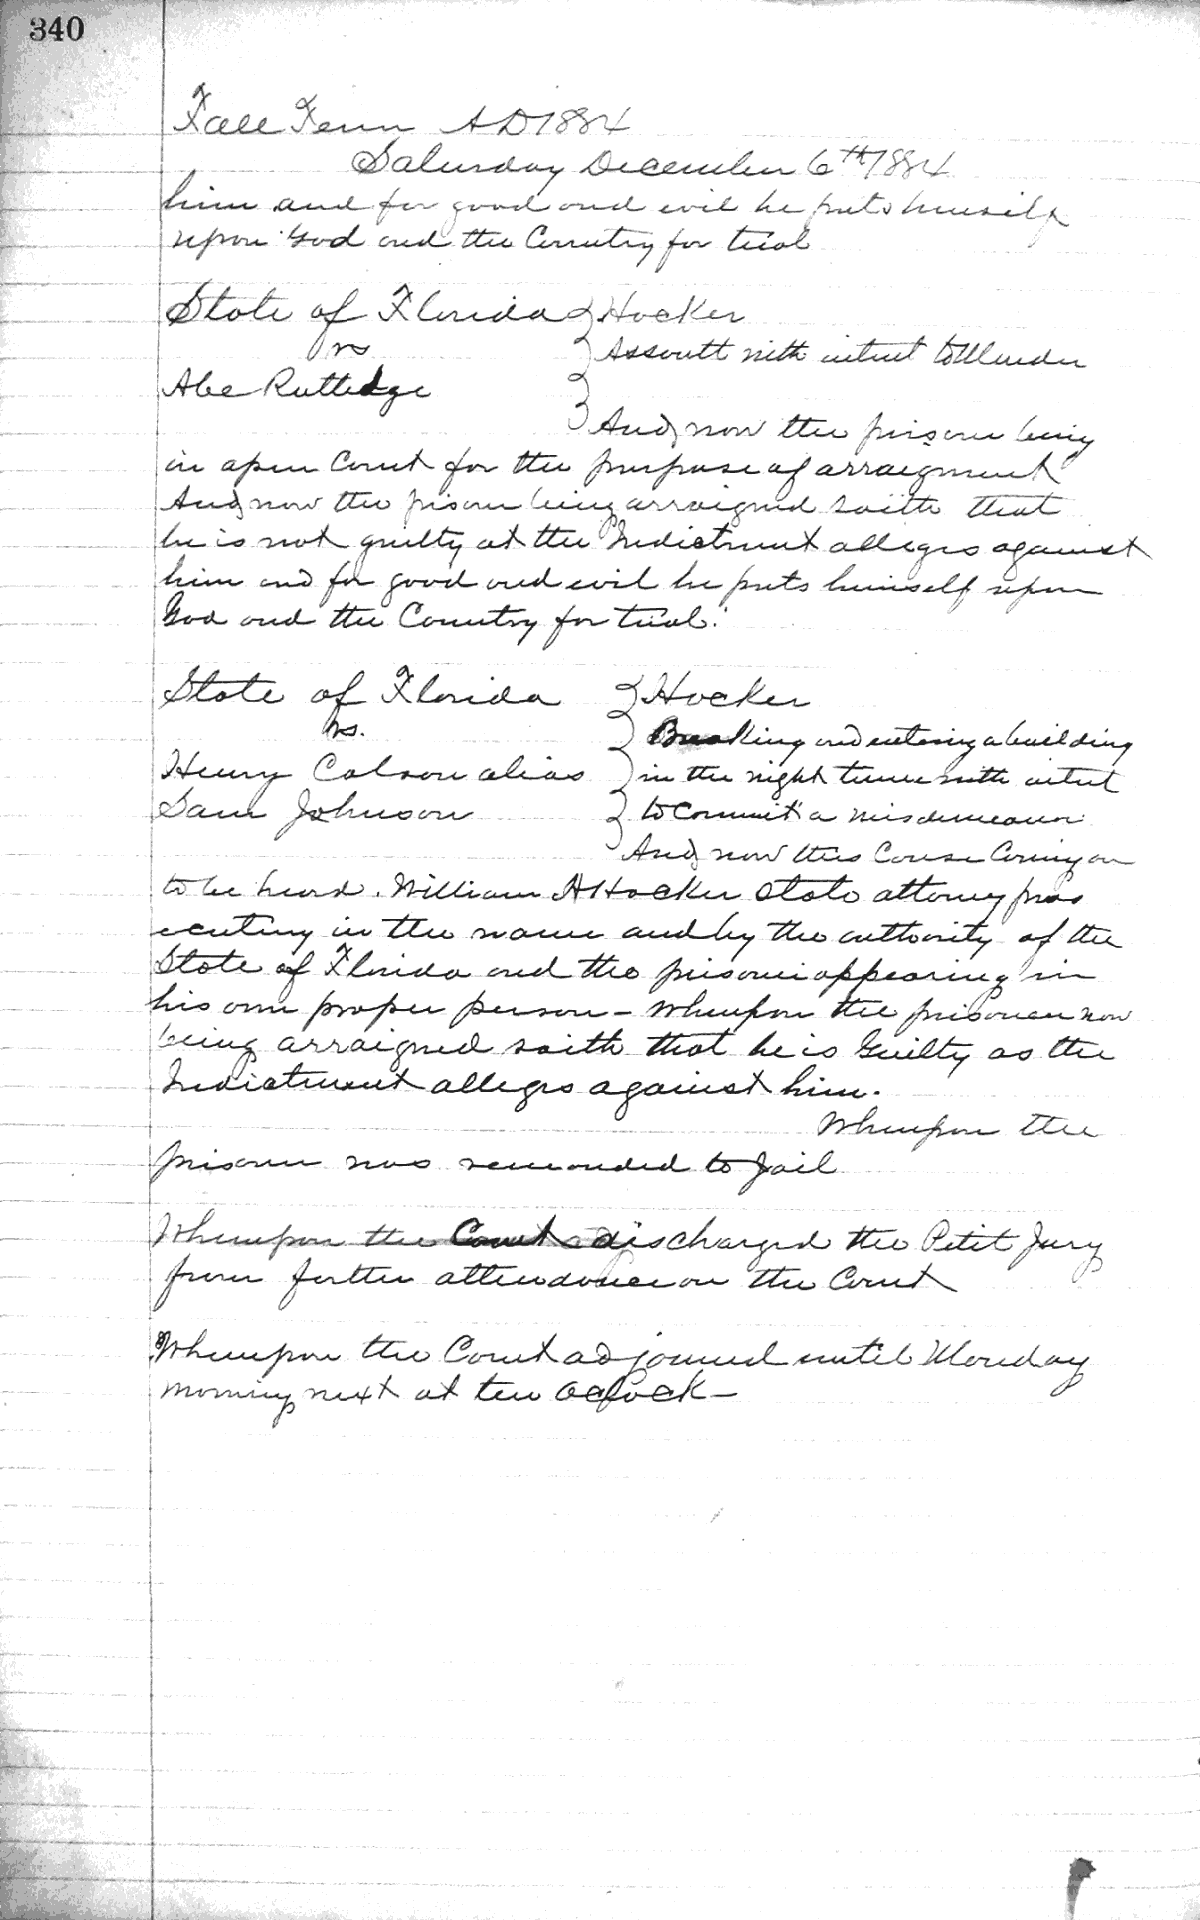 340
Fall Term AD 1884
Saturday December 6th 1884
him and for good and evil he puts himself
upon God and the Country for trial
State of Florida } Hocker
vs } Assault with intent to Murder
Abe Rutledge }
And now the prisoner being
in open Court for the purpose of arraigment
And now the prisoner being arraigned saith that
he is not guilty at the Indictment alleges against
him and for good and evil he puts himself upon
God and the Country for trial.
State of Florida } Hocker
vs. } Breaking and entering a building
Henry Colson alias } in the night time with intent
Sam Johnson } to Commit a misdemeanor
And now this Cause Coming on
to be heard. William A Hocker State attorney pros
ecuting in the name and by the authority of the
State of Florida and the prisoner appearing in
his own proper person – Whereupon the prisoner now
being arraigned saith that he is Guilty as the
Indictment alleges against him.
Whereupon the
prisoner was remanded to Jail
Whereupon the Court discharged the Petit Jury
from further attendance on the Court
Whereupon the Court adjourned until Monday
morning next at ten Oclock –